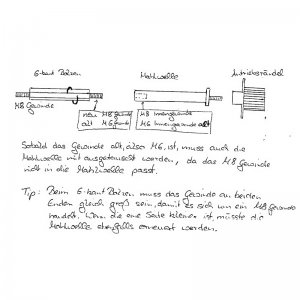 6-kant Bolzen
Mahlwelle
Antriebsrändel
M8 Gewinde
neu M8 Gewinde
alt M6 Gewinde
M8 Innengewinde
M6 Innengewinde alt
Sobald das Gewinde alt, also M6, ist, muss auch die
Mahlwelle mit ausgetauscht werden, da das M8 Gewinde
nicht in die Mahlwelle passt.
Tip: Beim 6-kant Bolzen muss das Gewinde an beiden
Enden gleich groß sein, damit es sich um ein M8 Gewinde
handelt. Wenn die eine Seite kleiner ist, müsste die
Mahlwelle ebenfalls erneuert werden.